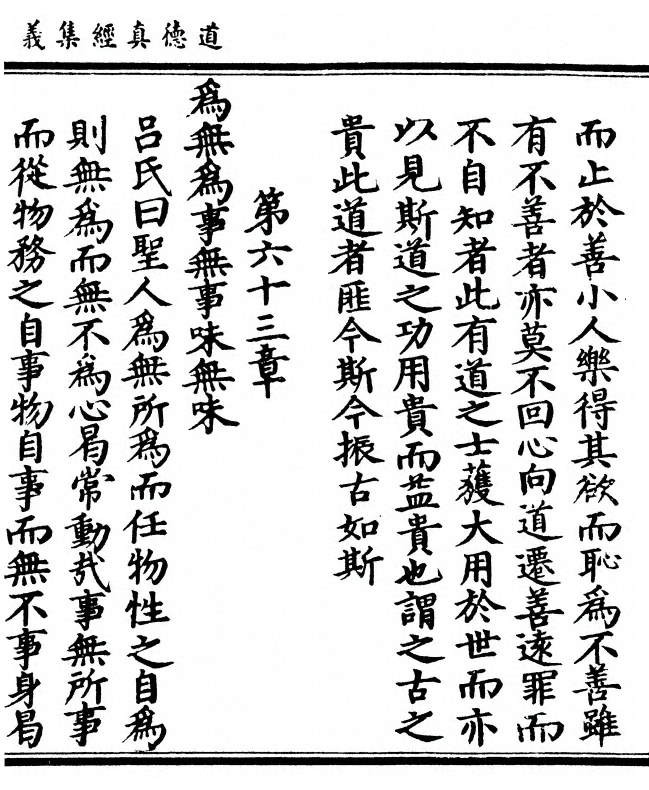 道德真經集義
而止於善小人樂得其欲而恥為不善雖
有不善者亦莫不回心向道遷善遠罪而
不自知者此有道之士獲大用於世而亦
以見斯道之功用貴而益貴也謂之古之
貴此道者匪今斯今振古如斯
第六十三章
為無為事無事味無味
呂氏曰聖人為無所為而任物性之自為
則無為而無不為心曷常動哉事無所事
而從物務之自事物自事而無不事身曷